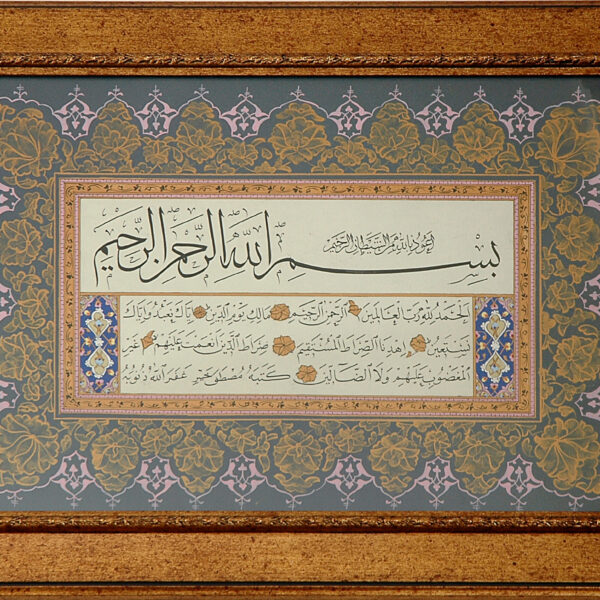 اعوذ بالله من الشيطان الرجيم
بسم الله الرحمن الرحيم
الحمد لله رب العالمين الرحمن الرحيم مالك يوم الدين اياك نعبد واياك
نستعين اهدنا الصراط المستقيم صراط الذين انعمت عليهم غير
المغضوب عليهم ولا الضالين كتبه مصطفى غفر الله ذنوبه